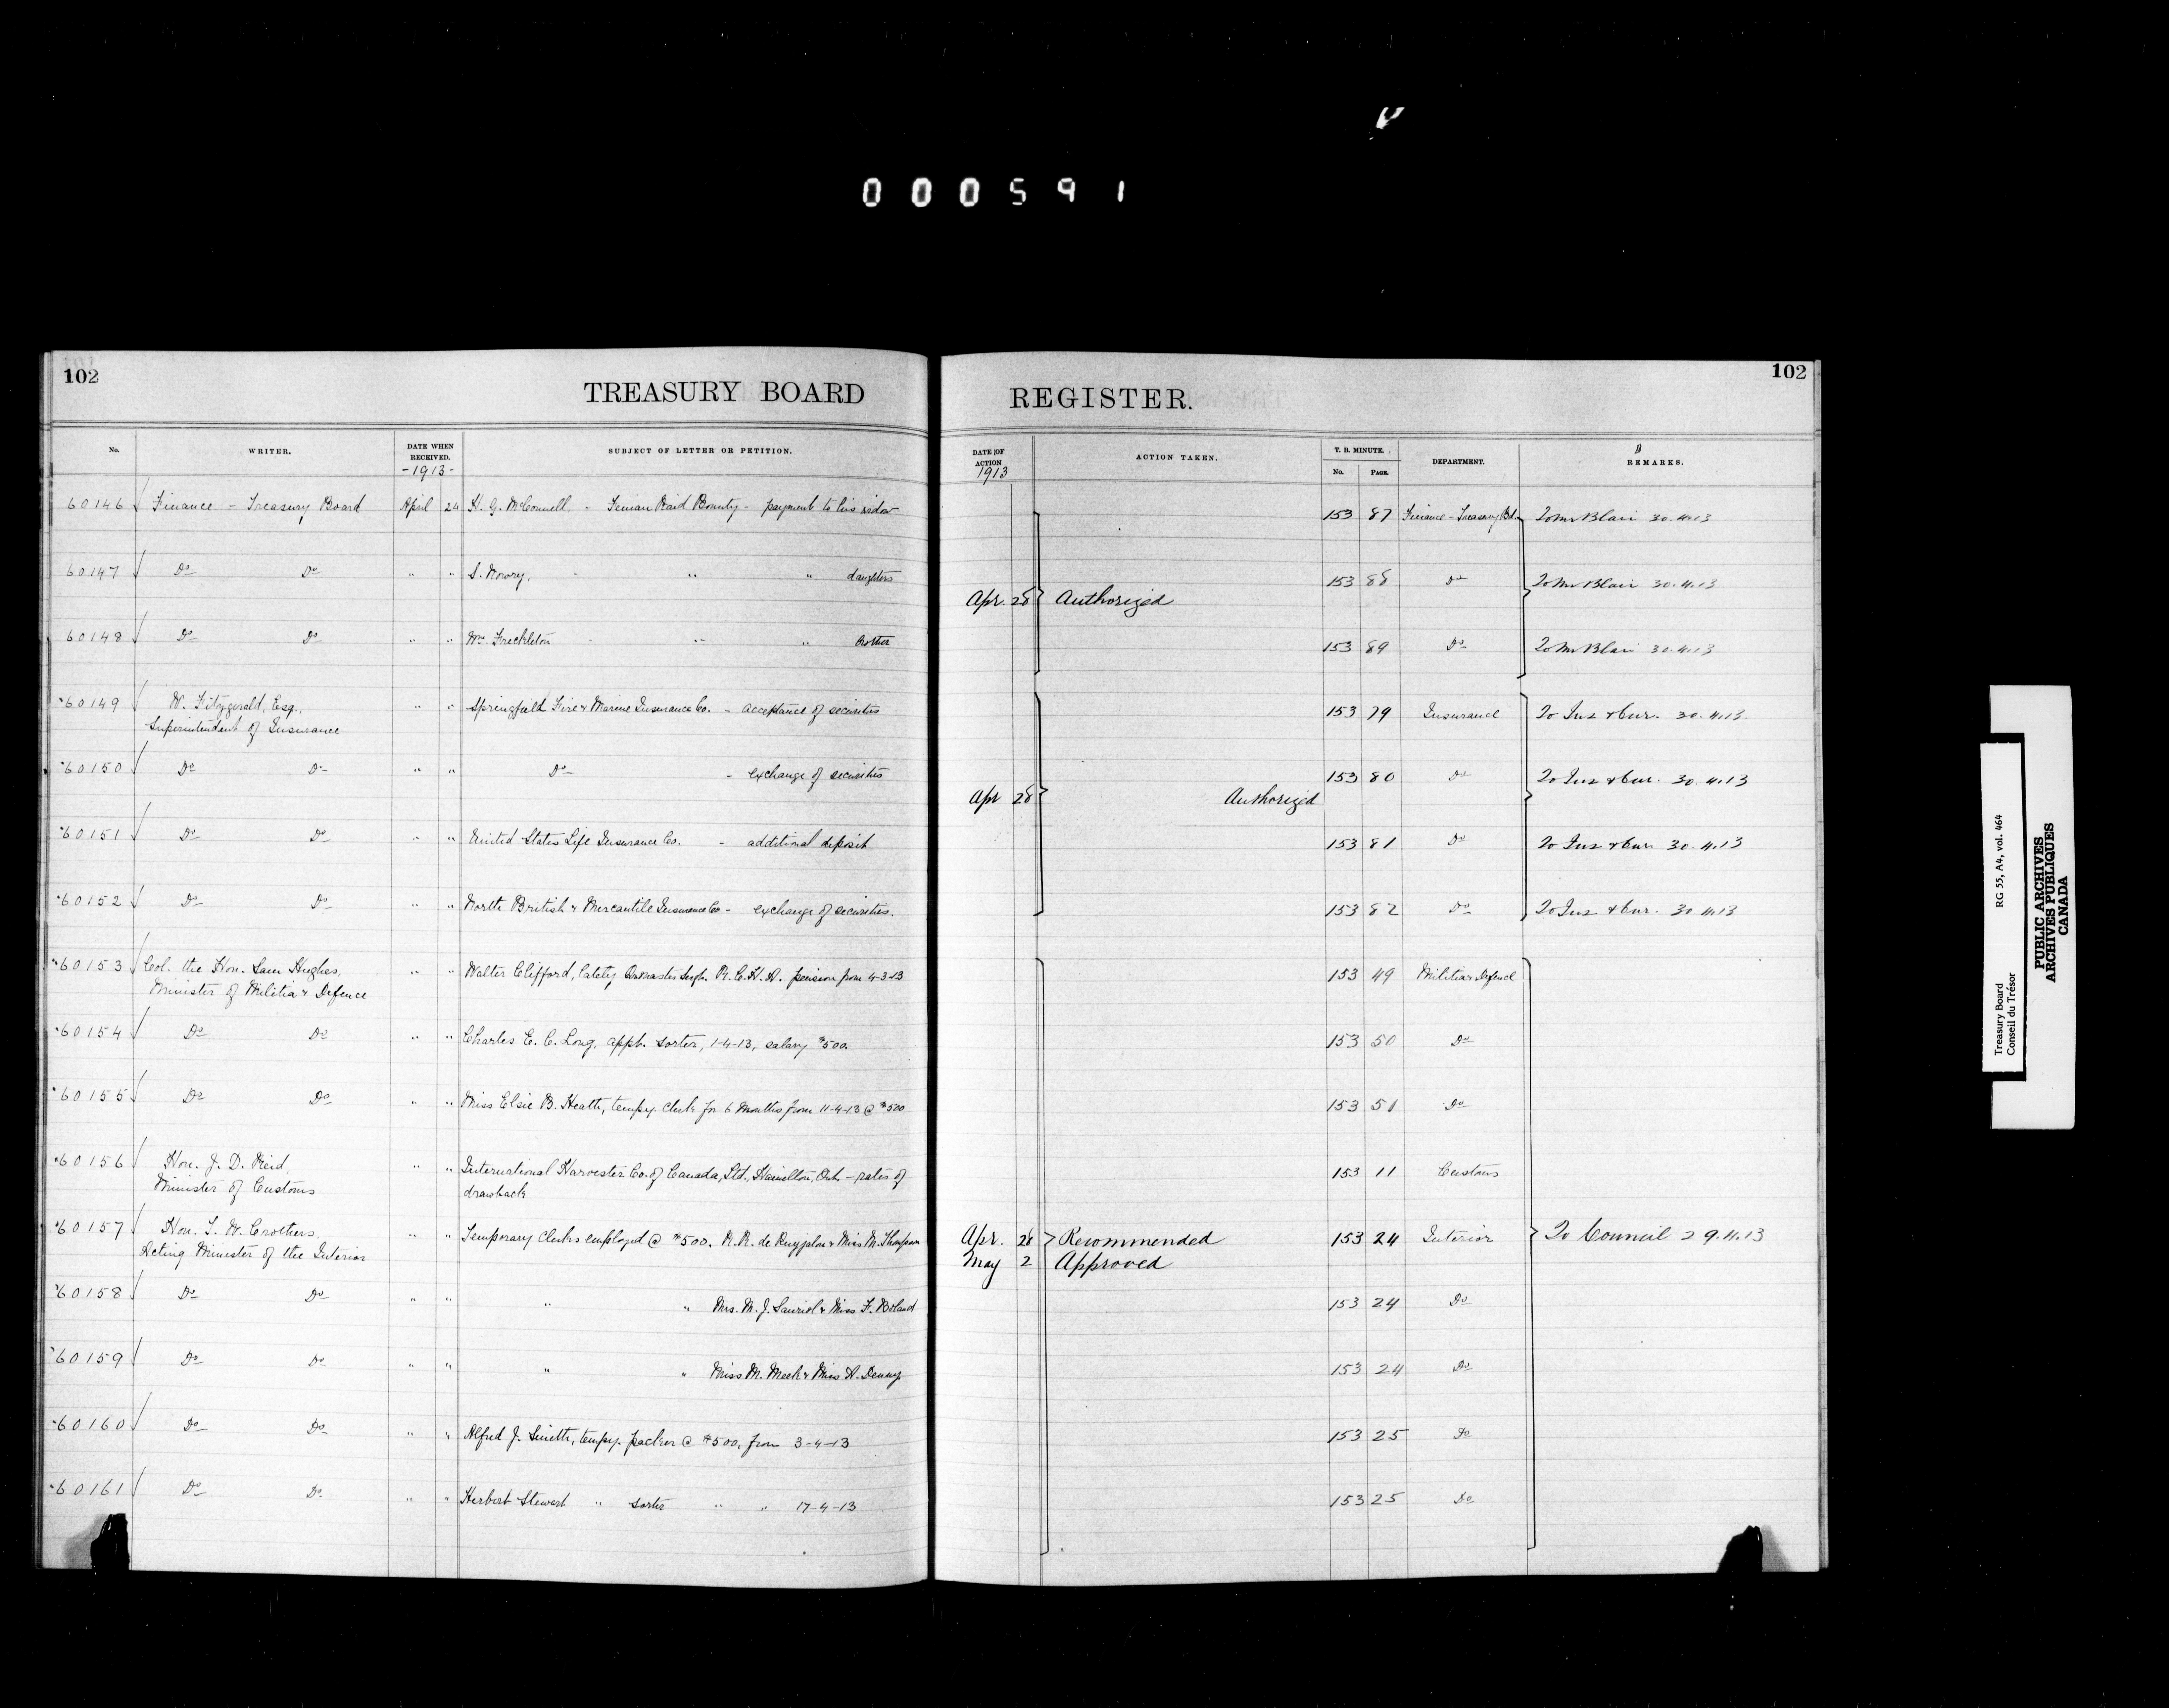 000591
102
TREASURY BOARD
REGISTER.
102
No.
WRITER.
DATE WHEN RECEIVED.
-1913-
SUBJECT OF LETTER OR PETITION.
DATE OF ACTION
1913
ACTION TAKEN.
T. B. MINUTE.
No. PAGE.
DEPARTMENT.
REMARKS.
60146 Finance - Treasury Board April 24 H. G. McConnell, - Fenian Raid Bounty - payment to his widow 153 87 Finance - Treasury Bd. To Mr Blair 30.4.13
60147 Do Do " " S. Mowry, - " " daughters 153 88 Do To Mr Blair 30.4.13
Apr. 28 Authorized
60148 Do Do " " Wm. Freckleton - " " brother 153 89 Do To Mr Blair 30.4.13
60149 W. Fitzgerald, Esq., " " Springfield Fire & Marine Insurance Co. - acceptance of securities 153 79 Insurance To Ins & Cur. 30.4.13.
Superintendent of Insurance
60150 Do Do " " Do - exchange of securities 153 80 Do To Ins & Cur. 30.4.13
Apr 28 Authorized
60151 Do Do " " United States Life Insurance Co. - additional deposit 153 81 Do To Ins & Cur 30.4.13
60152 Do Do " " North British & Mercantile Insurance Co - exchange of securities. 153 82 Do To Ins & Cur. 30.4.13
60153 Col. the Hon. Sam Hughes, " " Walter Clifford, lately Qrmaster Sergt. R.C.H.A. pension from 4-3-13 153 49 Militia & Defence
Minister of Militia & Defence
60154 Do Do " " Charles E. C. Long, appt. sorter, 1-4-13, salary $500. 153 50 Do
60155 Do Do " " Miss Elsie B. Heath, tempy. clerk for 6 months from 11-4-13 @ $500 153 51 Do
60156 Hon. J. D. Reid, " " International Harvester Co. of Canada, Ltd., Hamilton, Ont. - rates of 153 11 Customs
Minister of Customs drawback
60157 Hon. T. W. Crothers, " " Temporary clerks employed @ $500. R. R. de & Miss M. Thompson Apr. 28 Recommended 153 24 Interior To Council 29.4.13
Acting Minister of the Interior May 2 Approved
60158 Do Do " " " " Mrs. M. J. Lauriol & Miss F. Boland 153 24 Do
60159 Do Do " " " " Miss M. Meek & Miss A. Denny 153 24 Do
60160 Do Do " " Alfred J. Smith, tempy. packer @ $500, from 3-4-13 153 25 Do
60161 Do Do " " Herbert Stewart " sorter " " 17-4-13 153 25 Do
Treasury Board RG 55, A4, vol. 464
Conseil du Trésor
PUBLIC ARCHIVES
ARCHIVES PUBLIQUES
CANADA